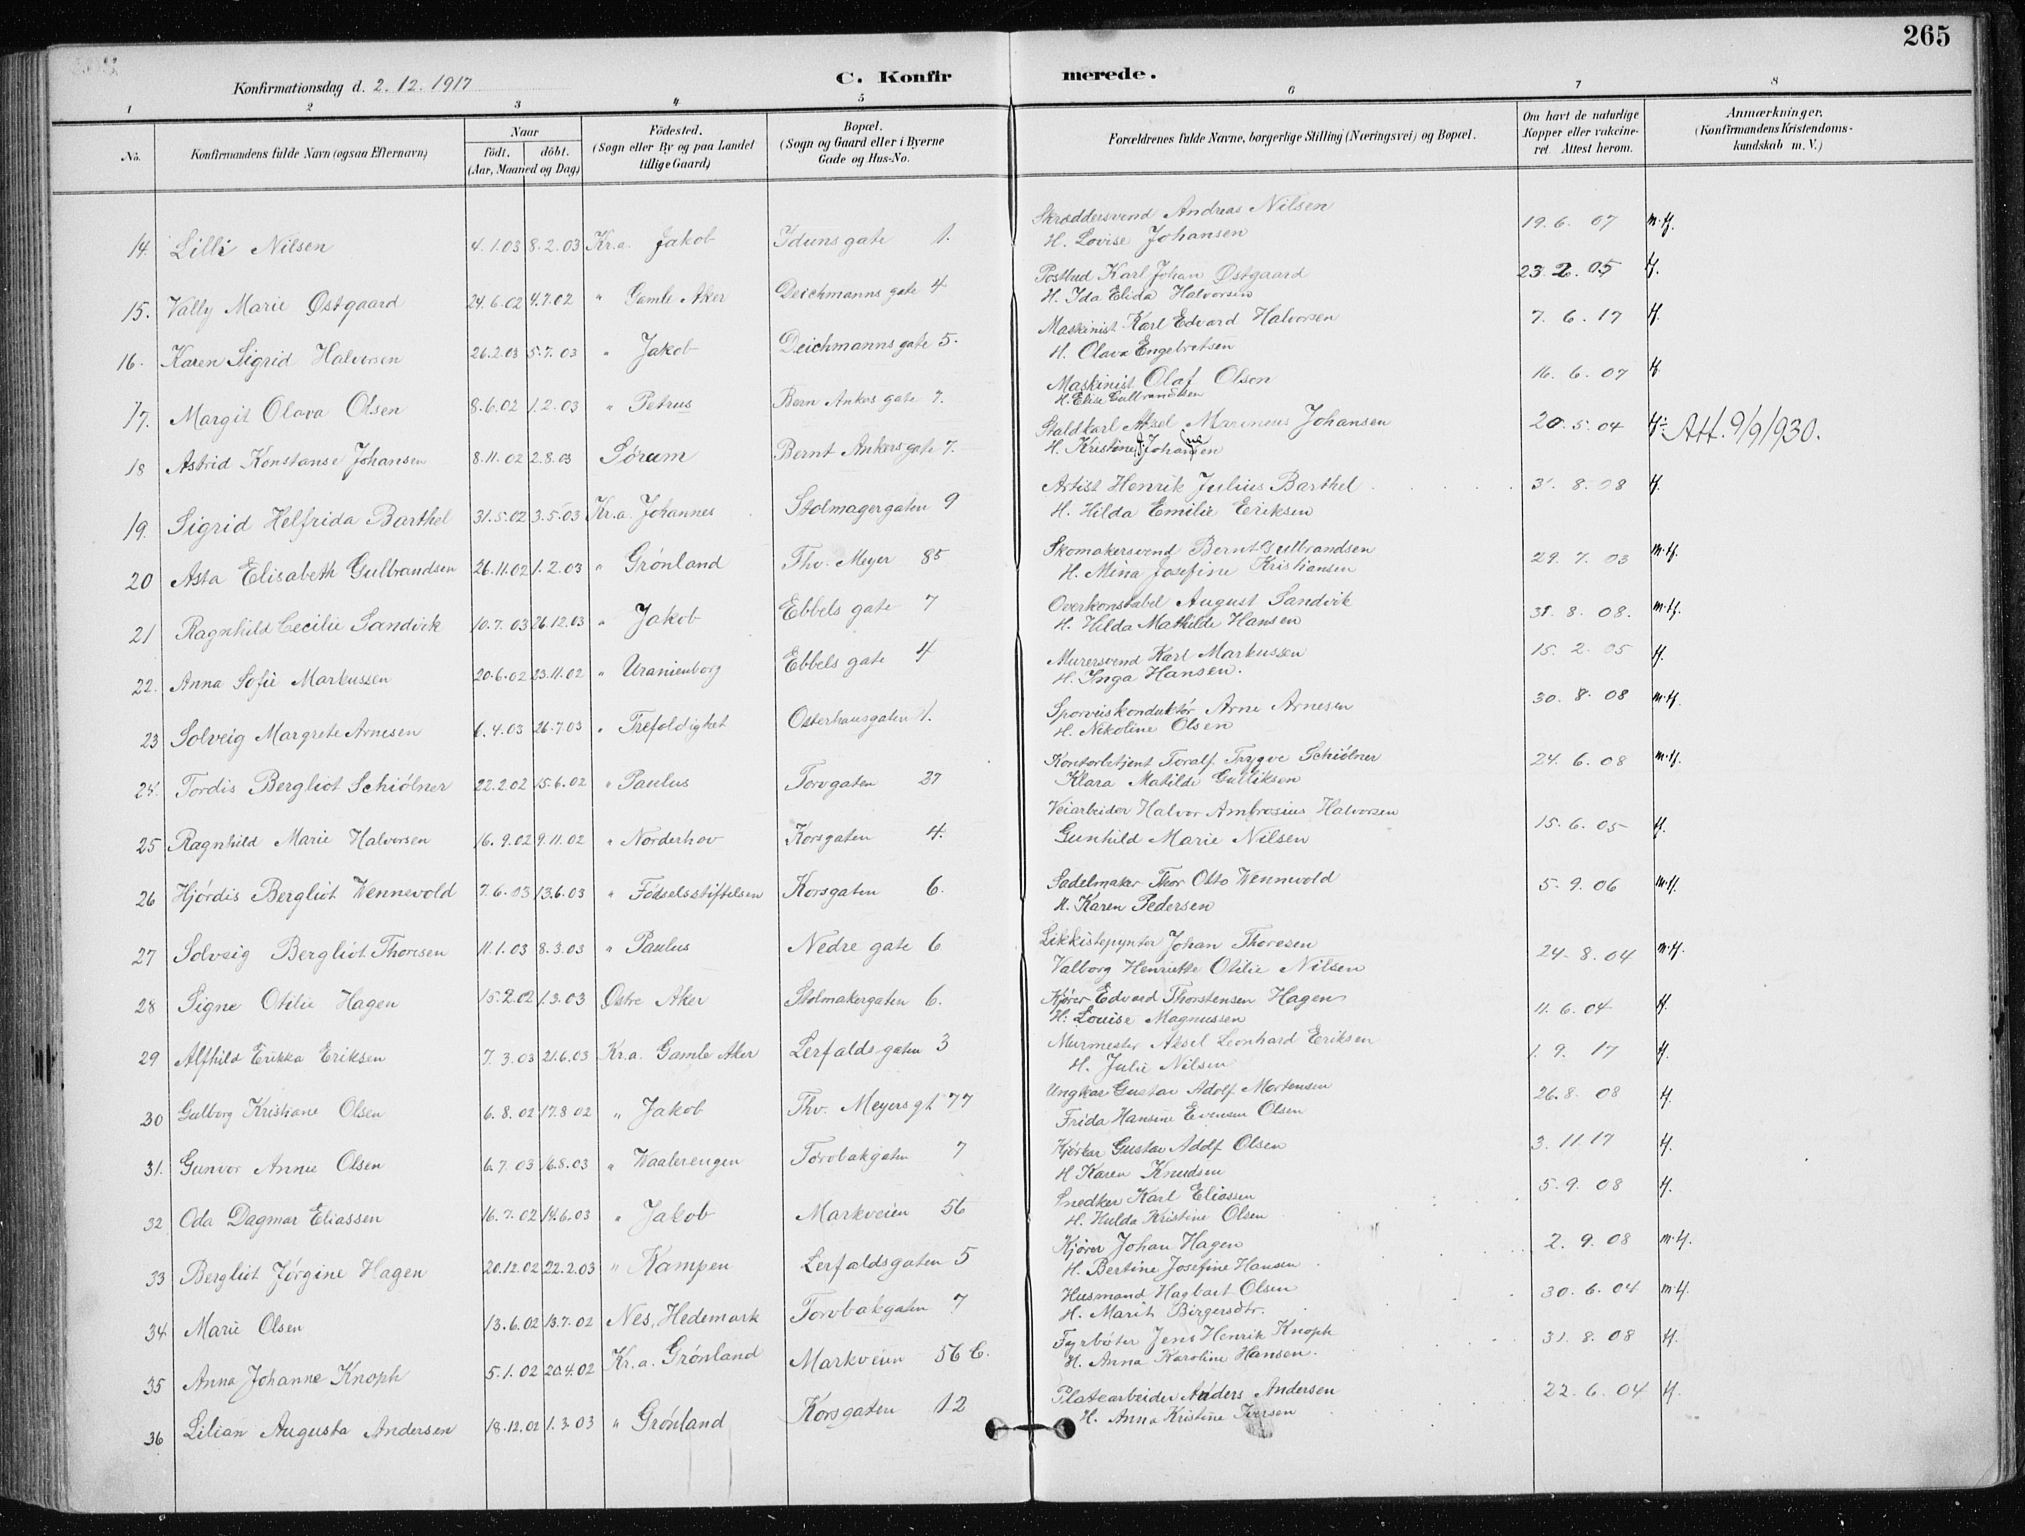 265
Konfirmationsdag d. 2.12.1917 C. Konfir merede.
1 2 3 4 5 6 7 8
No. Konfirmandens fulde Navn (ogsaa Efternavn) Naar født. døbt. (Aar, Maaned og Dag) Fødested. (Sogn eller By og paa Landet tillige Gaard) Bopæl. (Sogn og Gaard eller i Byerne Gade og Hus-No. Forældrenes fulde Navne, borgerlige Stilling (Næringsvei) og Bopæl. Om havt de naturlige Kopper eller vakcineret. Attest herom. Anmærkninger. (Konfirmandens Kristendomskundskab m. V.)
14. Lilli Nilsen 4.1.03 8.2.03 Kr.a. Jakob Idunsgate 1. Skræddersvend Andreas Nilsen 19.6.07 m.tf.
H. Lovise Johansen
15. Vally Marie Østgaard 24.6.02 4.7.02 " Gamle Aker Deichmanns gate 4 Postbud Karl Johan Østgaard 23.2.05 tf.
H. Ida Elida Halvorsen
16. Karen Sigrid Halvorsen 26.2.03 5.7.03 " Jakob Deichmanns gate 5. Maskinist Karl Edvard Halvorsen 7.6.17 tf.
H. Olava Engebretsen
17. Margit Olava Olsen 8.6.02 1.2.03 " Petrus Bern Ankers gate 7. Maskinist Olaf Olsen 16.6.07 tf
H. Elise Gulbrandsen
18 Astrid Konstanse Johansen 8.11.02 2.8.03 Sørum Bernt Ankers gate 7. Staldkarl Aksel Marineus Johansen 20.5.04 tf. Att. 9/9 1930.
H. Kristine Johansen
19. Sigrid Helfrida Barthel 31.5.02 3.5.03 Kr.a. Johannes Stolmagergaten 9 Artist Henrik Julius Barthel 31.8.08 tf.
H. Hilda Emilie Eriksen
20 Asta Elisabeth Gulbrandsen 26.11.02 1.2.03 " Grønland Thv. Meyer 85 Skomakersvend Bernt Gulbrandsen 29.7.03 m.tf.
H. Mina Josefine Kristiansen
21 Ragnhild Cecilie Sandvik 10.7.03 26.12.03 " Jakob Ebbels gate 7 Overkonstabel August Sandvik 31.8.08. m.tf.
H. Hilda Mathilde Hansen
22. Anna Sofie Markussen 20.6.02 23.11.02 " Uranienborg Ebbels gate 4 Murersvend Karl Markussen 15.2.05 tf.
H. Inga Hansen.
23 Solveig Margrete Arnesen 6.4.03 26.7.03 " Trefoldighet Osterhausgaten 1. Sporveiskonduktør Arne Arnesen 30.8.08 m.tf.
H. Nikoline Olsen
24. Tordis Bergliot Schiölner 22.2.02 15.6.02 " Paulus Torvgaten 27 Kontorbetjent Toralf Trygve Schiölner 24.6.08 m.tf.
Klara Matilde Gulliksen
25 Ragnhild Marie Halvorsen 16.9.02 9.11.02 " Norderhov Korsgaten 4. Veiarbeider Halvor Ambrosius Halvorsen 15.6.05 tf.
Gunhild Marie Nilsen
26 Hjördis Bergliot Wennevold 7.6.03 13.6.03 " Fødselsstiftelsen Korsgaten 6. Sadelmaker Thor Otto Wennevold 5.9.06 m.tf.
H. Karen Pedersen
27 Solveig Bergliot Thoresen 11.1.03 8.3.03 " Paulus Nedre gate 6 Likkistepynter Johan Thoresen 24.8.04 m.tf.
Valborg Henriette Otilie Nilsen
28 Signe Otilie Hagen 15.2.02 1.3.03 Østre Aker Stolmakergaten 6. Kjører Edvard Thorstensen Hagen 11.6.04 tf.
H. Louise Magnussen
29 Alfhild Erikka Eriksen 7.3.03 21.6.03 Kr.a. Gamle Aker Lerfaldsgaten 3 Murmester Aksel Leonhard Eriksen 1.9.17 tf.
H. Julie Nilsen
30 Gulborg Kristiane Olsen 6.8.02 17.8.02 " Jakob Thv. Meyersgt 77 Ungkar Gustav Adolf Mortensen 26.8.08 tf.
Frida Hansine Evensen Olsen
31. Gunvor Annie Olsen 6.7.03 16.8.03 " Waalerengen Torvbakgaten 7 Kjørkar Gustav Adolf Olsen 3.11.17 tf.
H Karen Knudsen
32 Oda Dagmar Eliassen 16.7.02 14.6.03 " Jakob Markveien 56 Snedker Karl Eliassen 5.9.08 tf.
H. Hulda Kristine Olsen
33 Bergliot Jörgine Hagen 20.12.02 22.2.03 " Kampen Lerfaldsgaten 5 Kjører Johan Hagen 2.9.08 m.tf.
H. Bertine Josefine Hansen
34 Marie Olsen 13.6.02 13.7.02 Nes, Hedemark Torvbakgaten 7 Husmand Hagbart Olsen 30.6.04 m.tf.
H. Marit Birgersdtr.
35 Anna Johanne Knoph 5.1.02 20.4.02 Kr.a. Grønland Markveien 56 C. Fyrbøter Jens Henrik Knoph 31.8.08 tf.
H. Anna Karoline Hansen.
36 Lilian Augusta Andersen 18.12.02 1.3.03 " Grønland Korsgaten 12 Platearbeider Anders Andersen 22.6.04 tf.
H. Anna Kristine Iversen